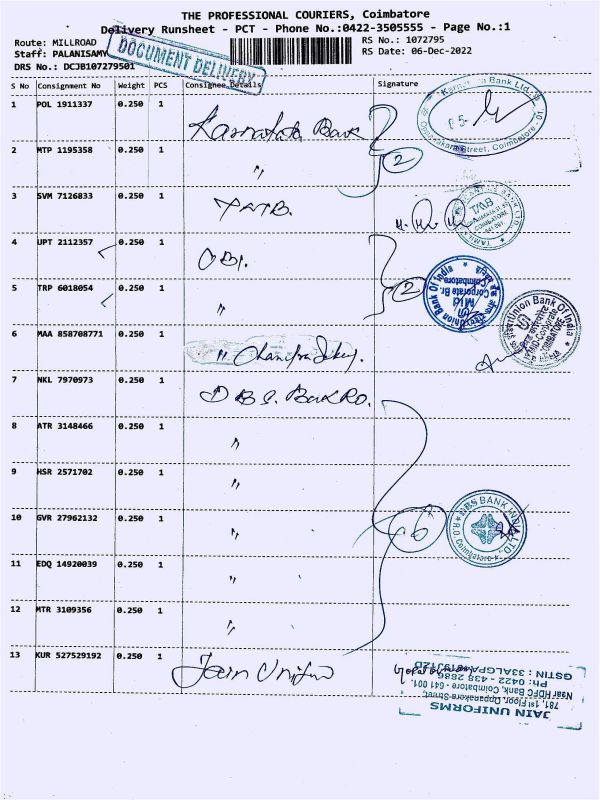 THE PROFESSIONAL COURIERS, Coimbatore
Delivery Runsheet - PCT - Phone No.:0422-3505555 - Page No.:1
Route: MILLROAD RS No.: 1072795
Staff: PALANISAMY RS Date: 06-Dec-2022
DOCUMENT DELIVERY
DRS No.: DCJB107279501
S No Consignment No Weight PCS Consignee Details Signature
1 POL 1911337 0.250 1 Karnataka Bank
Karnataka Bank Ltd.
Oppanakara Street, Coimbatore - 01
2 MTP 1195358 0.250 1 " 2
3 SVM 7126833 0.250 1 TMB.
TMB
COIMBATORE
4 UPT 2112357 0.250 1 UBI.
5 TRP 6018054 0.250 1 " 2
Union Bank Of India
Corporate Br.
Coimbatore
Union Bank Of India
6 MAA 858708771 0.250 1 "
7 NKL 7970973 0.250 1 DBS. Bank RO.
8 ATR 3148466 0.250 1 "
9 HSR 2571702 0.250 1 "
10 GVR 27962132 0.250 1 " 6
DBS BANK INDIA LTD.
R.O. Coimbatore
11 EDQ 14920039 0.250 1 "
12 MTR 3109356 0.250 1 "
13 KUR 527529192 0.250 1 Jain Uniform
JAIN UNIFORMS
781, 1st Floor, Oppanakara Street,
Near HDFC Bank, Coimbatore - 641 001.
Ph: 0422 - 438 2886